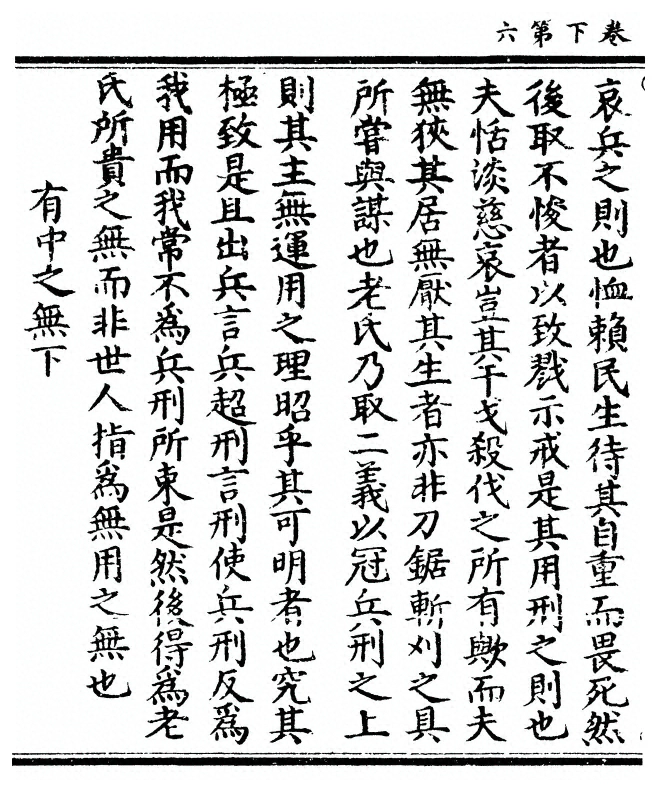 卷下第六
哀兵之則也恤賴民生待其自重而畏死然
後取不悛者以致戮示戒是其用刑之則也
夫恬淡慈哀豈其干戈殺伐之所有歟而夫
無狹其居無厭其生者亦非刀鋸斬刈之具
所嘗與謀也老氏乃取二義以冠兵刑之上
則其主無運用之理昭乎其可明者也究其
極致是且出兵言兵超刑言刑使兵刑反爲
我用而我常不爲兵刑所束是然後得爲老
氏所貴之無而非世人指爲無用之無也
有中之無下